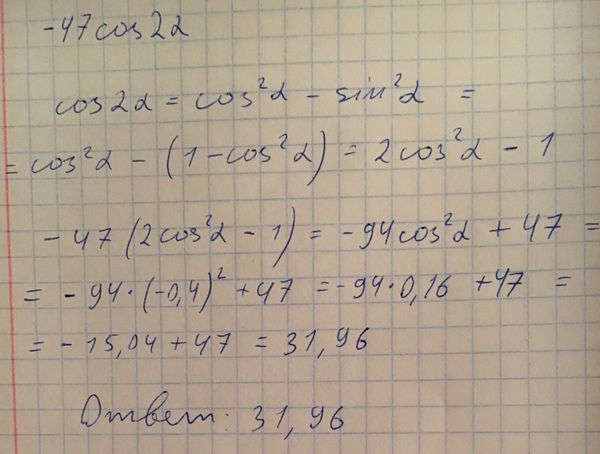 -47cos2α
cos2α = cos²α - sin²α =
= cos²α - (1-cos²α) = 2cos²α - 1
-47(2cos²α - 1) = -94cos²α + 47 =
= -94·(-0,4)² +47 =-94·0,16 +47 =
= -15,04+47 = 31,96
Ответ: 31,96